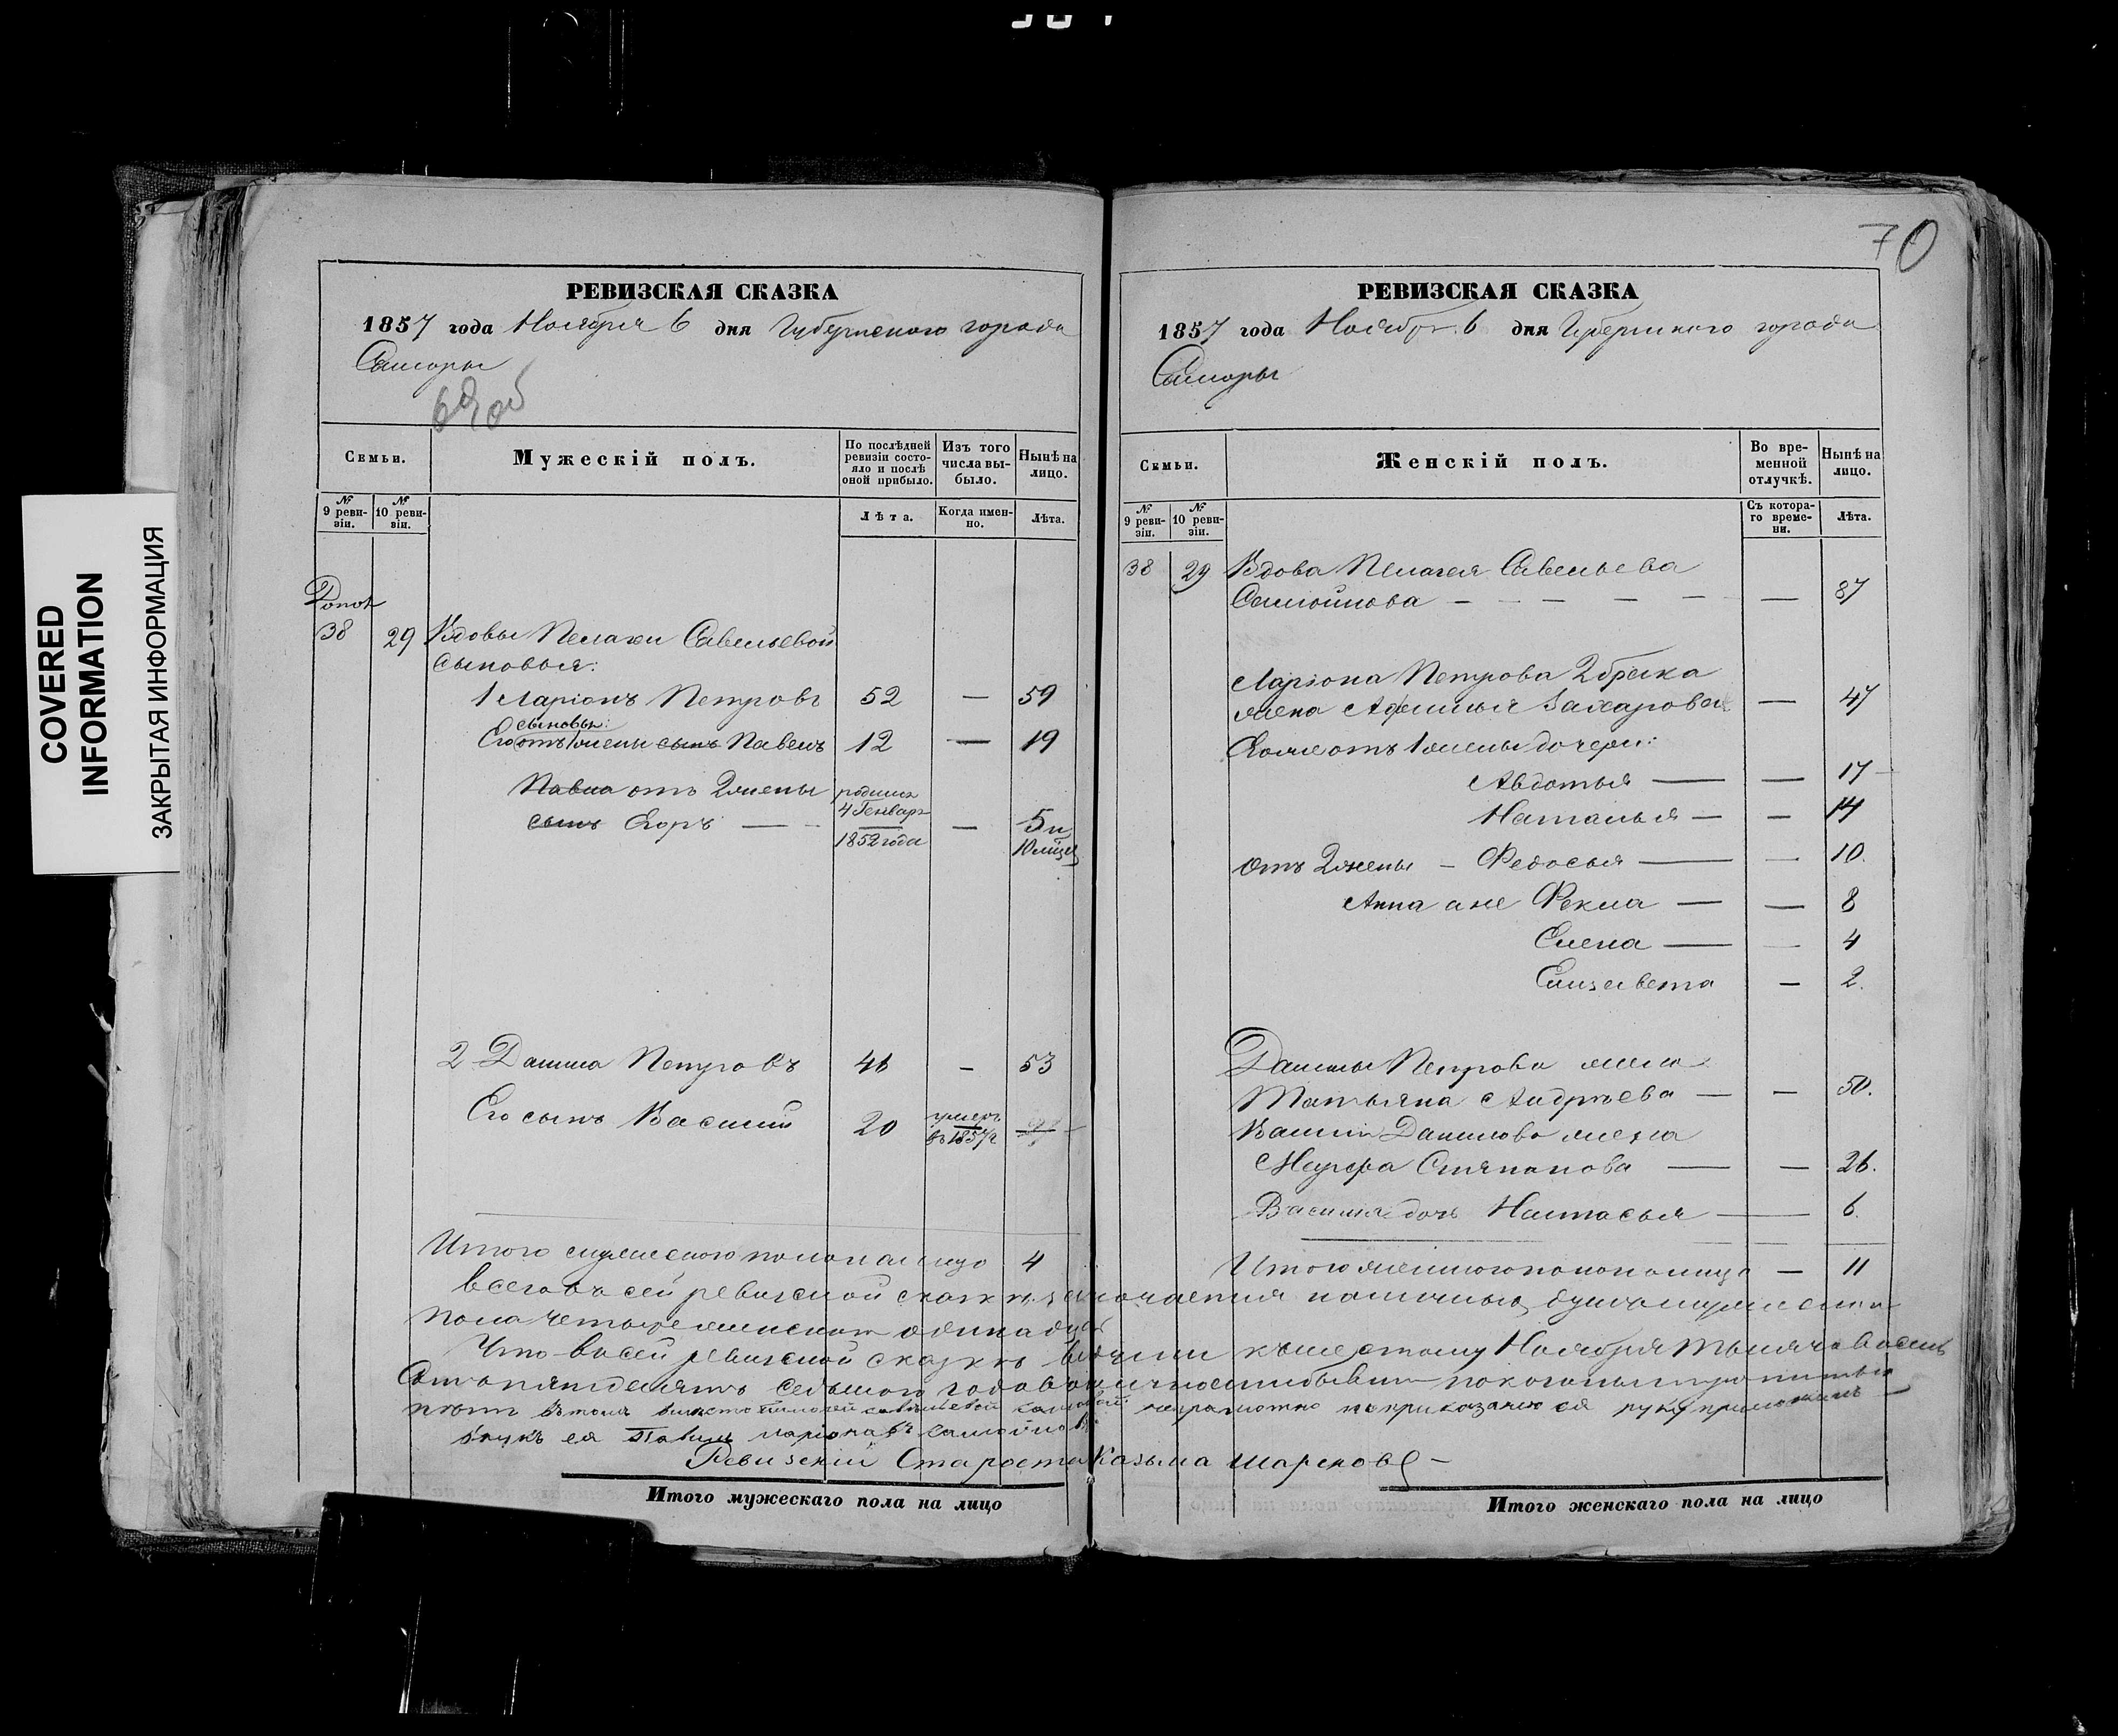 COVERED
INFORMATION
ЗАКРЫТАЯ ИНФОРМАЦИЯ
РЕВИЗСКАЯ СКАЗКА
1857 года Ноября 6 дня Губернского города
Самары
69 об
Семьи.
Мужескій полъ.
По послѣдней ревизіи состояло и послѣ оной прибыло.
Изъ того числа выбыло.
Нынѣ на лицо.
№ 9 ревизіи.
№ 10 ревизіи.
Лѣта.
Когда именно.
Лѣта.
38 29 Вдовы Пелагеи Савельевой
сыновья:
1 Ларіонъ Петровъ 52 — 59
сыновья:
Его отъ 1 жены сынъ Павелъ 12 — 19
Павла отъ 2 жены родился
4 Генваря
сынъ Егоръ — 1852 года — 5 и
10 мѣся
2 Данила Петровъ 46 — 53
Его сынъ Василій 20 умеръ
въ 1857 г —
Итого мужескаго пола на лицо 4
Итого мужескаго пола на лицо
70
РЕВИЗСКАЯ СКАЗКА
1857 года Ноября 6 дня Губернского города
Самары
Семьи.
Женскій полъ.
Во временной отлучкѣ.
Нынѣ на лицо.
№ 9 ревизіи.
№ 10 ревизіи.
Съ котораго времени.
Лѣта.
38 29 Вдова Пелагея Савельева
Самойлова — — 87
Ларіона Петрова 2 брака
жена Афимья Захарова — 47
Егоже отъ 1 жены дочери:
Авдотья — — 17
Наталья — — 14
отъ 2 жены — Федосья — — 10.
Анна она же Фекла — — 8
Елена — — 4
Елизавета — 2.
Данилы Петрова жена
Татьяна Андреева — — 50.
Василія Данилова жена
Марфа Степанова — — 26.
Василія дочь Настасья — 6.
Итого женского пола на лицо — 11
Всего въ сей ревизской сказкѣ заключается наличныхъ душъ мужеска
пола четыре женскаго одинадцать
Что въ сей ревизской сказкѣ всѣ къ шестому Ноября тысяча восемь
сотъ пятдесятъ седьмого года
внукъ ея Павелъ Ларіоновъ Самойловъ
Ревизскій Староста Казьма
Итого женскаго пола на лицо